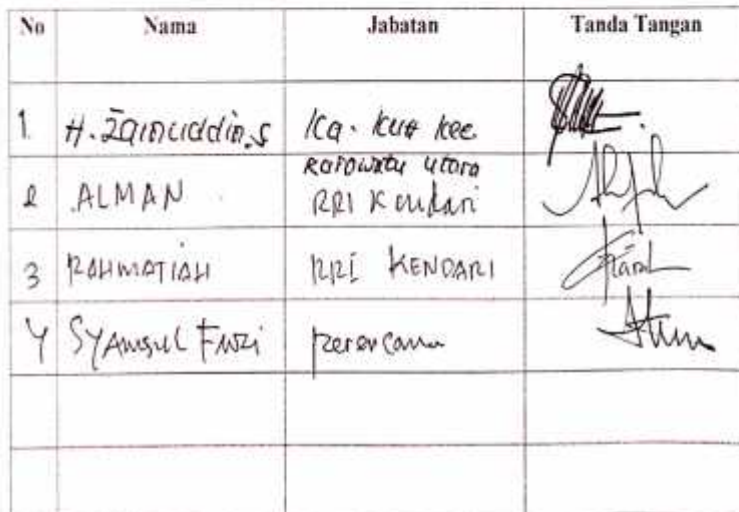 No Nama Jabatan Tanda Tangan
1. H. Zainuddin.S Ka. KUA Kec.
Rarowatu utara
2 ALMAN RRI Kendari
3 RAHMATIAH RRI KENDARI
4 SYAMSUL FUZI Perencana